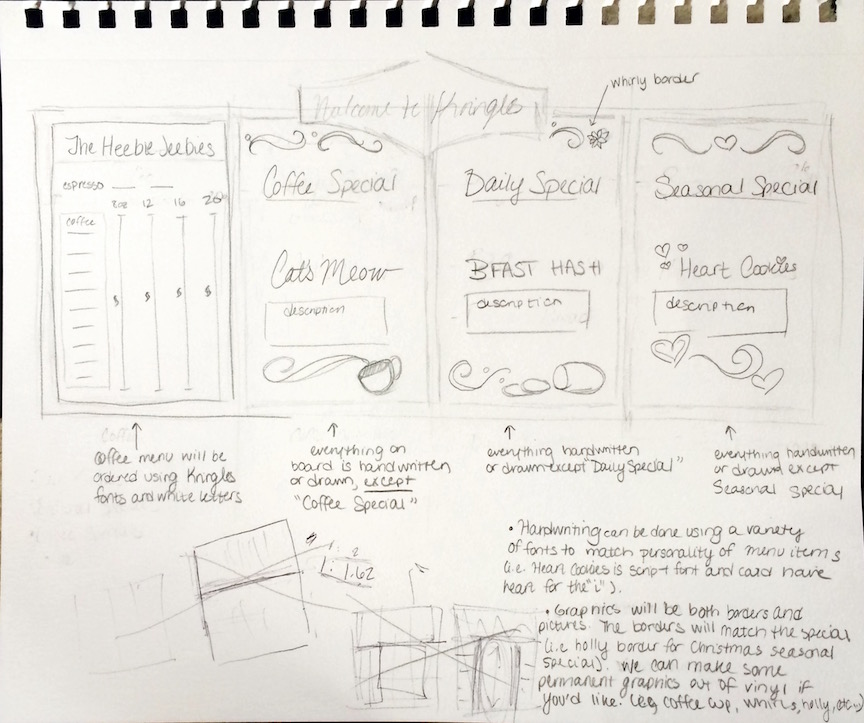 whirly border
Welcome to Kringles
The Heebie Jeebies
espresso
8oz 12 16 20
coffee
$ $ $ $
Coffee Special
Cat's Meow
description
Daily Special
BFAST HASH
description
Seasonal Special
Heart Cookies
description
Coffee menu will be
ordered using Kringles
fonts and white letters
everything on
board is handwritten
or drawn, except
"Coffee Special"
everything handwritten
or drawn except "Daily Special"
everything handwritten
or drawn except
Seasonal Special
• Handwriting can be done using a variety
of fonts to match personality of menu items
(i.e. Heart Cookies is script font and could have
heart for the "i").
• Graphics will be both borders and
pictures. The borders will match the special
(i.e holly border for Christmas seasonal
special). We can make some
permanent graphics out of vinyl if
you'd like. (eg, coffee cup, whirls, holly, etc.)
1 : 2
1 : 1.62